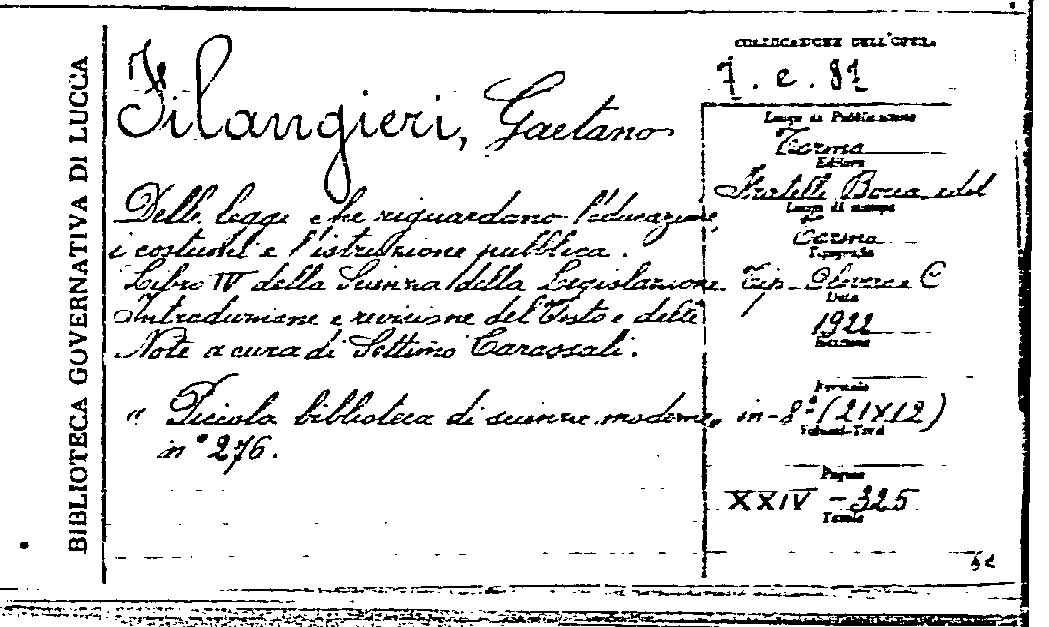 BIBLIOTECA GOVERNATIVA DI LUCCA
Filangieri, Gaetano
Delle leggi che riguardano l'educazione,
i costumi e l'istruzione pubblica.
Libro IV della Scienza della Legislazione.
Introduzione e revisione del Testo e delle
Note a cura di Settimo Carassali.
" Piccola biblioteca di scienze moderne "
n° 276.
COLLOCAZIONE DELL'OPERA
7. e. 81
Luogo di Pubblicazione
Torino
Editore
Fratelli Bocca edit
Luogo di stampa
Tipografia
Tip.
Data
1922
Edizione
Formato
in-8° (21X12)
Volumi-Tomi
Pagine
XXIV - 325
Tavole